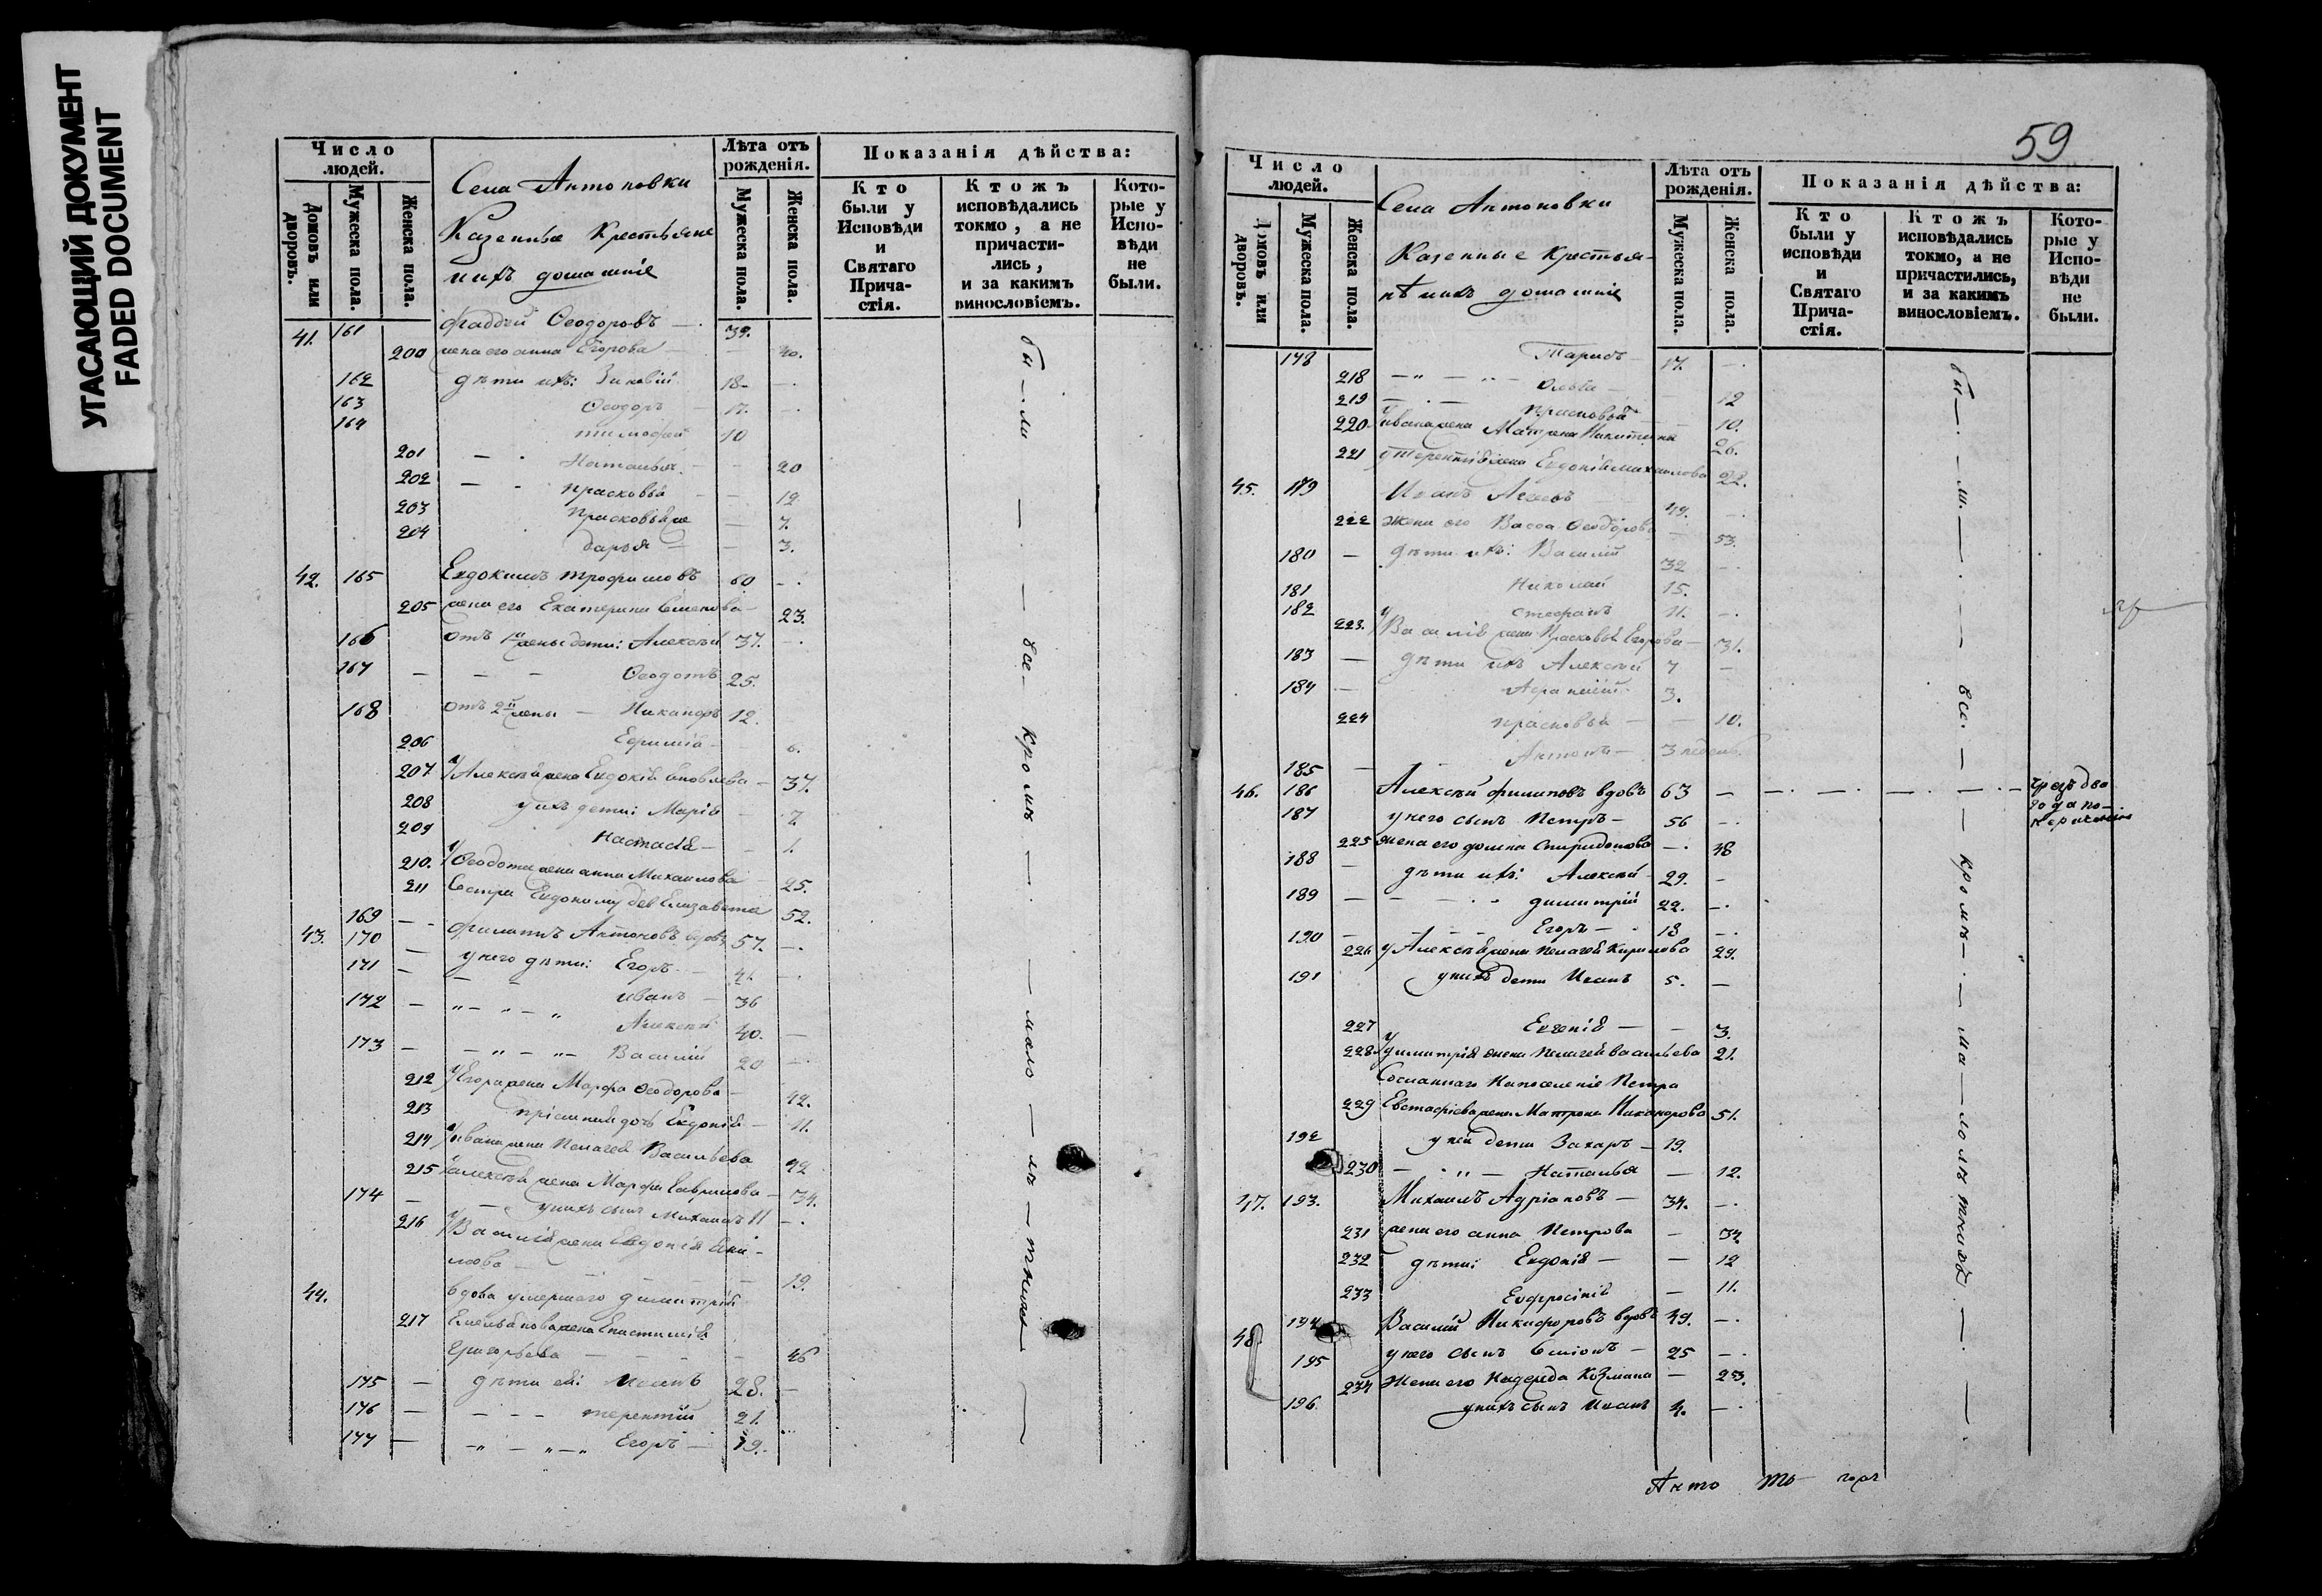 УГАСАЮЩИЙ ДОКУМЕНТ
FADED DOCUMENT
Число людей.
Домовъ или дворовъ.
Мужеска пола.
Женска пола.
Села Антоновки
Казенные Крестьяне
ихъ домашніе
Лѣта отъ рожденія.
Мужеска пола.
Женска пола.
Показанія дѣйства:
Кто были у Исповѣди и Святаго Причастія.
Ктожъ исповѣдались токмо, а не причастились, и за какимъ винословіемъ.
Которые у Исповѣди не были.
41. 161 Фаддей Ѳеодоровъ — 39.
200 жена его Анна Егорова — 40.
162 дѣти ихъ: Зиновій 18 —
163 Ѳеодоръ — 17. —
164 Тимофей 10
201 — Наталья — 20
202 — Прасковья — 12
203 Прасковья же — 7.
204 Дарья — 3.
42. 165 Евдокимъ Трофимовъ 60 —
205 жена его Екатерина Семенова — 23.
166 отъ 1й жены дети: Алексѣй 37. —
167 — — — Ѳеодотъ 25.
168 отъ 2й жены — Никаноръ 12.
206 Ефимія — 6.
207 у Алексѣя жена Евдокія Яковлева — 37.
208 у ихъ дети: Марія — 7.
209 Настасья — 1.
210. у Ѳеодота жена Анна Михаилова — 25.
211 Сестра Евдокиму дев Елизавета 52.
43. 169 — Филипъ Антоновъ вдовъ 57. —
170 — у него дѣти: Егоръ — 41. —
171 — Иванъ — 36
172 — Алексѣй 40. —
173 — Василій 20 —
212 у Егора жена Марфа Ѳеодорова — 42.
213 пріемный дочь Евдокія — 11.
214 у Ивана жена Пелагея Васильева 42
215 у Алексѣя жена Марфа Гаврилова — 34.
174 — у нихъ сынъ Михаилъ 11 —
216 у Василія жена Евдокія
19.
44. вдова умершаго Димитрія
217 Емельянова жена
Григорьева — 46
175 — дѣти ея: Иванъ 28. —
176 — — — Терентій 21.
177 — — — Егоръ — 19.
бы — ли — — все кромѣ — — мало — лѣ — тныхъ —
59
Число людей.
Домовъ или дворовъ.
Мужеска пола.
Женска пола.
Села Антоновки
Казенные Крестья-
не ихъ домашніе
Лѣта отъ рожденія.
Мужеска пола.
Женска пола.
Показанія дѣйства:
Кто были у исповѣди и Святаго Причастія.
Ктожъ исповѣдались токмо, а не причастились, и за какимъ винословіемъ.
Которые у Исповѣди не были.
178 17. —
218 Ольга — 12
219 Прасковья — 10.
220 у Ивана жена Матрена Никитина 26.
221 у Терентія жена Евдокія Михаилова 22.
45. 179 Иванъ 49. —
222 жена его Васса Ѳеодорова 53.
180 — дѣти ихъ: Василій 32 —
181 Николай 15.
182 Стефанъ 11. —
223. у Василія жена Прасковья Егорова — 31.
183 — дѣти ихъ Алексѣй 7 —
184 — 3.
224 Прасковья — 10.
185 — Антонъ — 3 недели
46. 186 Алексѣй Филиповъ вдовъ 63 —
187 у него сынъ Петръ — 56 —
225 жена его Домна Спиридонова — 48
188 дѣти ихъ: Алексѣй 29. —
189 — Димитрій 22. —
190 — Егоръ — 18 —
226 у Алексѣя жена Пелагея Кирилова 29.
191 у нихъ дети Иванъ 5. —
227 Евгенія — 3.
228. у Димитрія жена Пелагея Васильева 21.
Сосланнаго на поселеніе Петра
229 Евстафіева жена Матрона Никанорова 51.
192 у ней дети Захаръ — 19.
230 — Наталья — 12.
47. 193. Михаилъ Адріановъ — 34. —
231 жена его Анна Петрова — 34
232 дѣти: Евдокія — 12
233 Евфросинія — 11.
48 194 Василій Никифоровъ вдовъ 49. —
195 у него сынъ Симіонъ — 25 —
234 жена его Надежда Козмина — 23.
196. у нихъ сынъ Иванъ 4. —
бы — ли — — все. — — кромѣ — — ма — лолѣтныхъ —
чрезъ два
года по